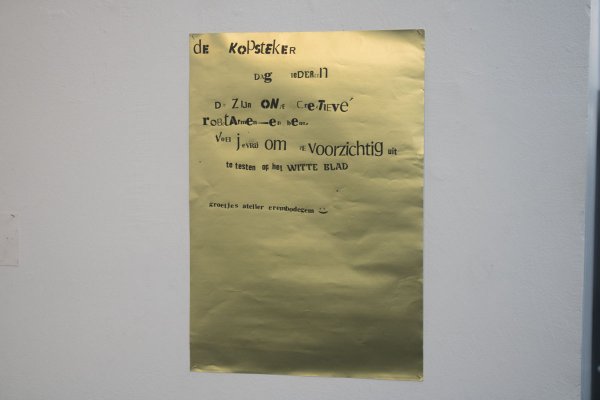 de KOPsteKER
DAg IeDEReeN
Dit Zijn ONze CreaTIeVe
robotArmen en benen
Voel je vrij om ze Voorzichtig uit
te testen op het WITTE BLAD
groetjes atelier erembodegem